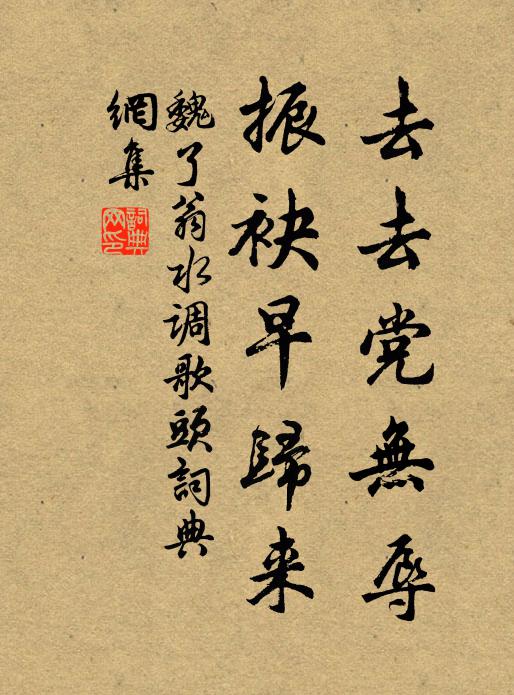 去去党無辱
振袂早歸来
魏了翁水调歌頭詞典
網集
詞典
网印